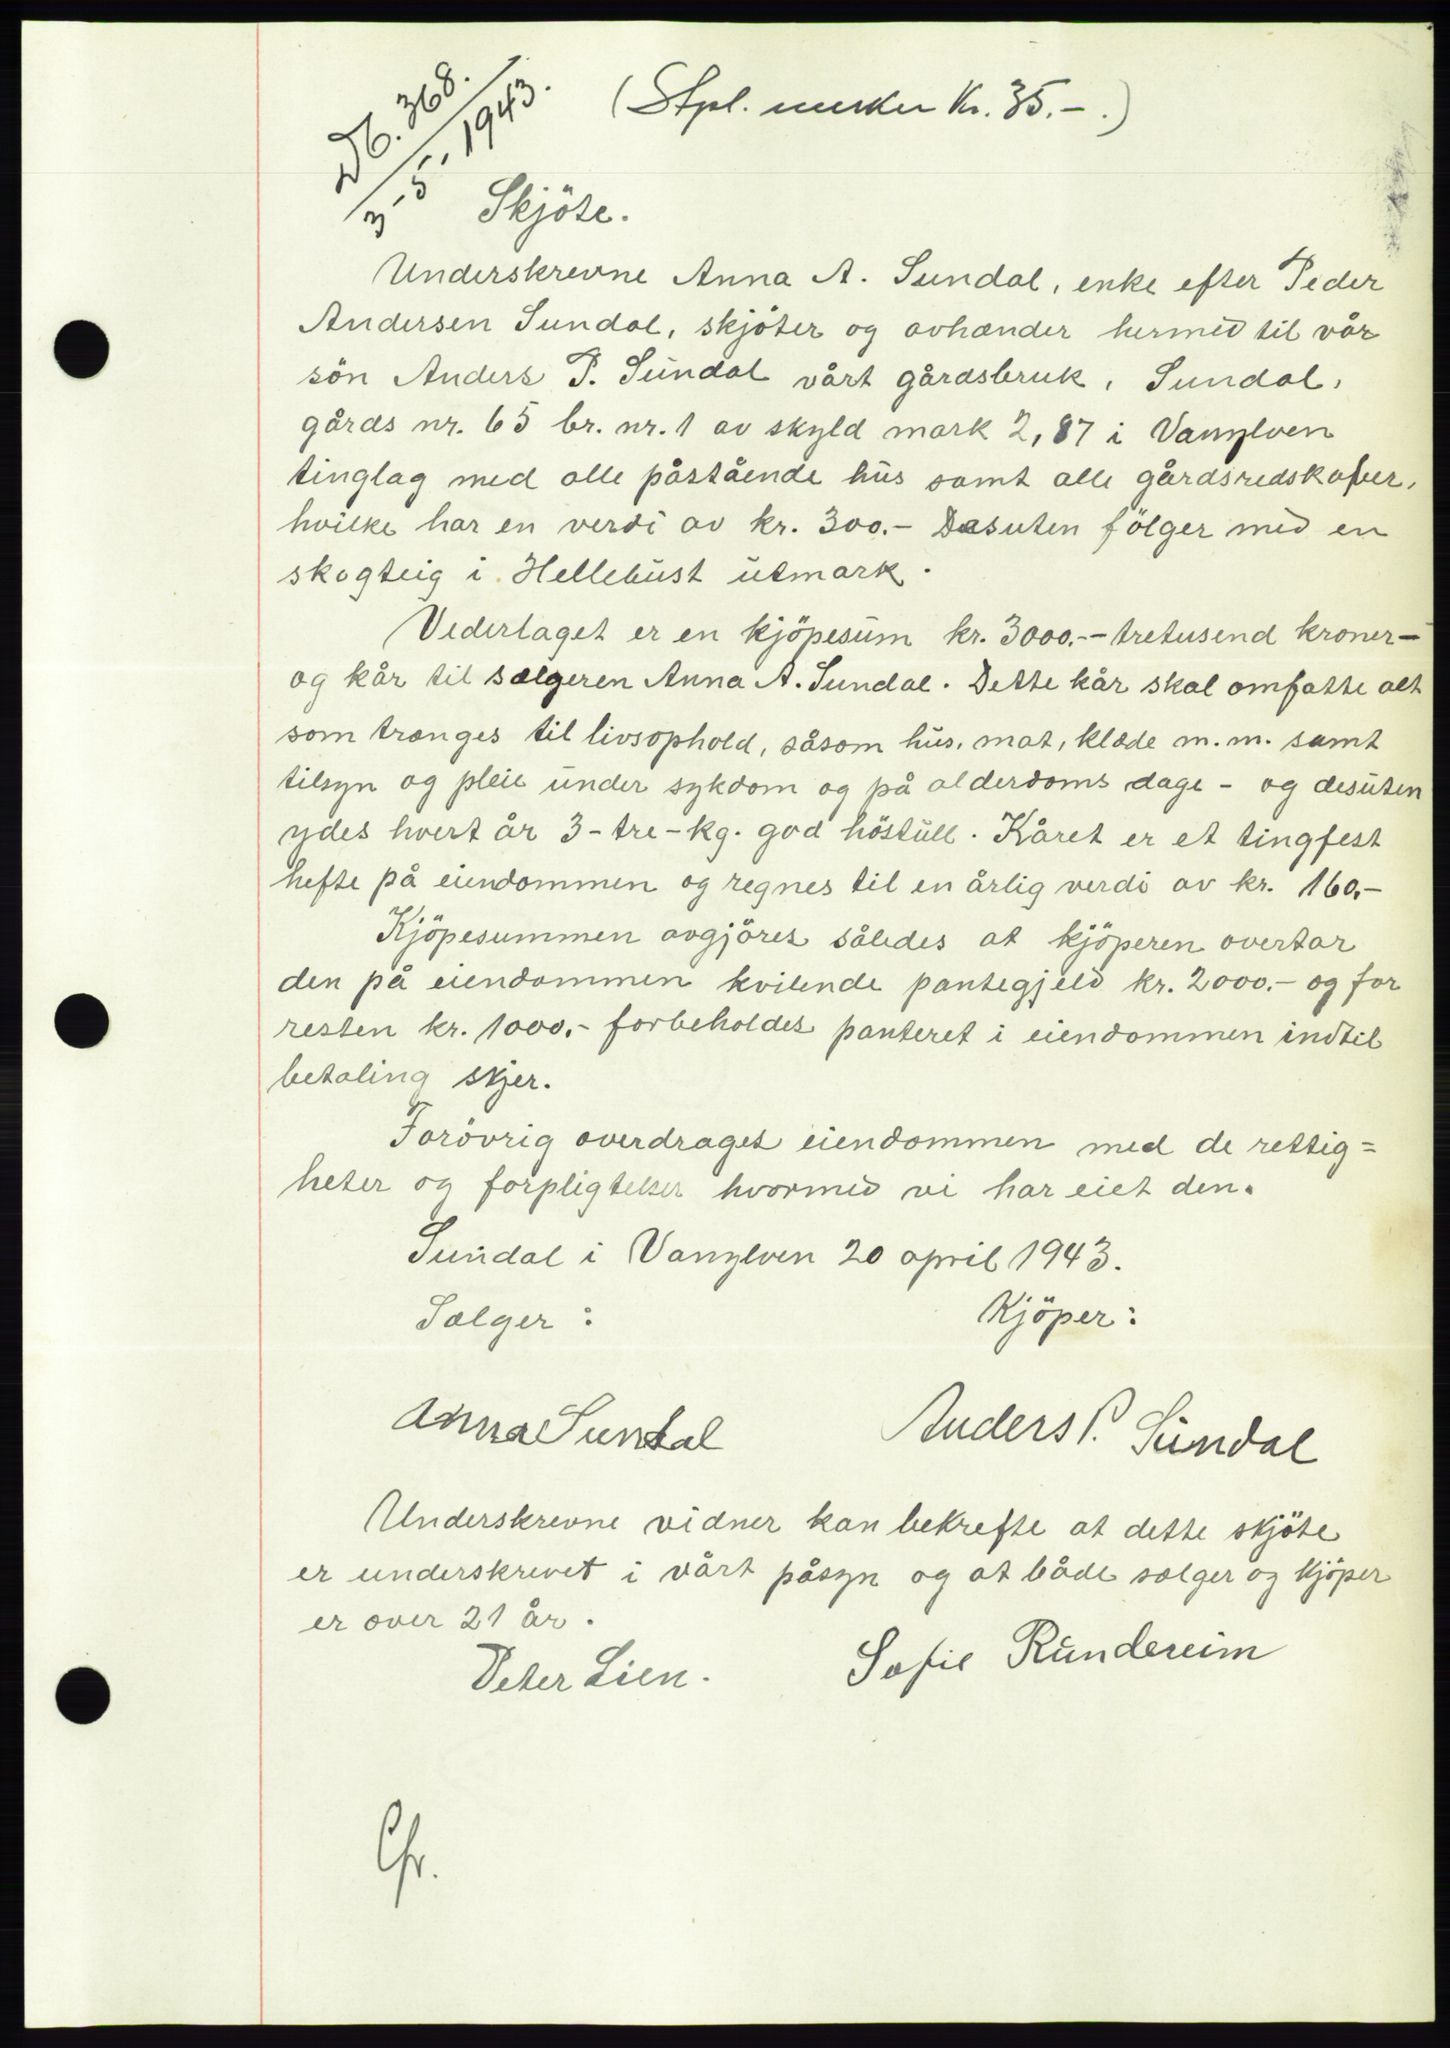 Db. 368.
3-5-1943.
(Stpl. merker Kr. 35.-.)
Skjöte.
Underskrevne Anna A. Sundal, enke efter Peder
Andersen Sundal, skjöter og avhænder hermed til vår
sön Anders P. Sundal vårt gårdsbruk, Sundal,
gårds nr. 65 br. nr. 1 av skyld mark 2,87 i Vanylven
tinglag med alle påstående hus samt alle gårdsredskaper,
hvilke har en verdi av kr. 300.- Desuten fölger med en
skogteig i Hellebust utmark.
Vederlaget er en kjöpesum kr. 3000.-- tretusend kroner-
og kår til sælgeren Anna A. Sundal. Dette kår skal omfatte alt
som trænges til livsophold, såsom hus, mat, klæde m.m. samt
tilsyn og pleie under sykdom og på alderdoms dage - og desuten
ydes hvert år 3-tre-kg. god höstull. Kåret er et tingfest
hefte på eiendommen og regnes til en årlig verdi av kr. 160,-
Kjöpesummen avgjöres således at kjöperen overtar
den på eiendommen hvilende pantegjeld kr. 2000.- og for
resten kr. 1000,- forbeholdes panteret i eiendommen indtil
betaling skjer.
Forövrig overdrages eiendommen med de rettig=
heter og forpligtelser hvormed vi har eiet den.
Sundal i Vanylven 20 april 1943.
Sælger: Kjöper:
Anna Sundal Anders P. Sundal
Underskrevne vidner kan bekrefte at dette skjöte
er underskrevet i vårt påsyn og at både sælger og kjöper
er over 21 år.
Peter Lien. Sofie Rundereim
Cfr.